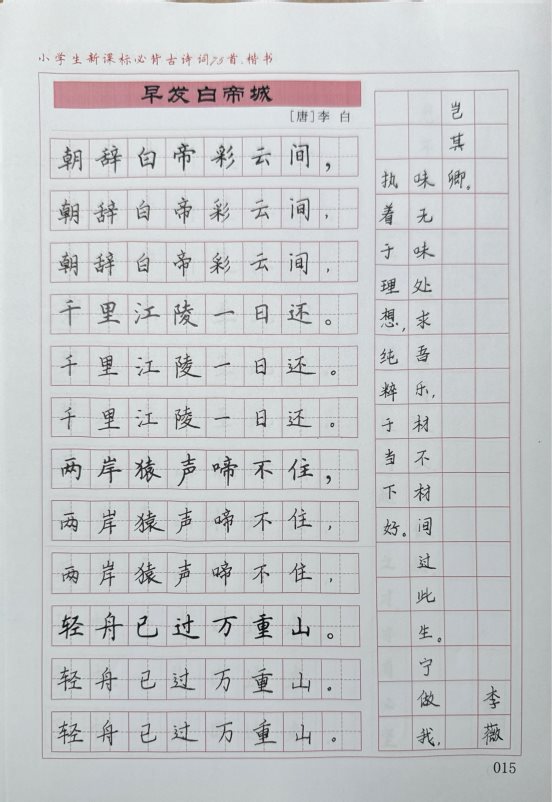 小学生新课标必背古诗词75首.楷书
早发白帝城
[唐]李 白
朝辞白帝彩云间，
朝辞白帝彩云间，
朝辞白帝彩云间，
千里江陵一日还。
千里江陵一日还。
千里江陵一日还。
两岸猿声啼不住，
两岸猿声啼不住，
两岸猿声啼不住，
轻舟已过万重山。
轻舟已过万重山。
轻舟已过万重山。
执着于理想，纯粹于当下好。
味无味处求吾乐，材不材间过此生。宁做我，
岂其卿。
李薇
015